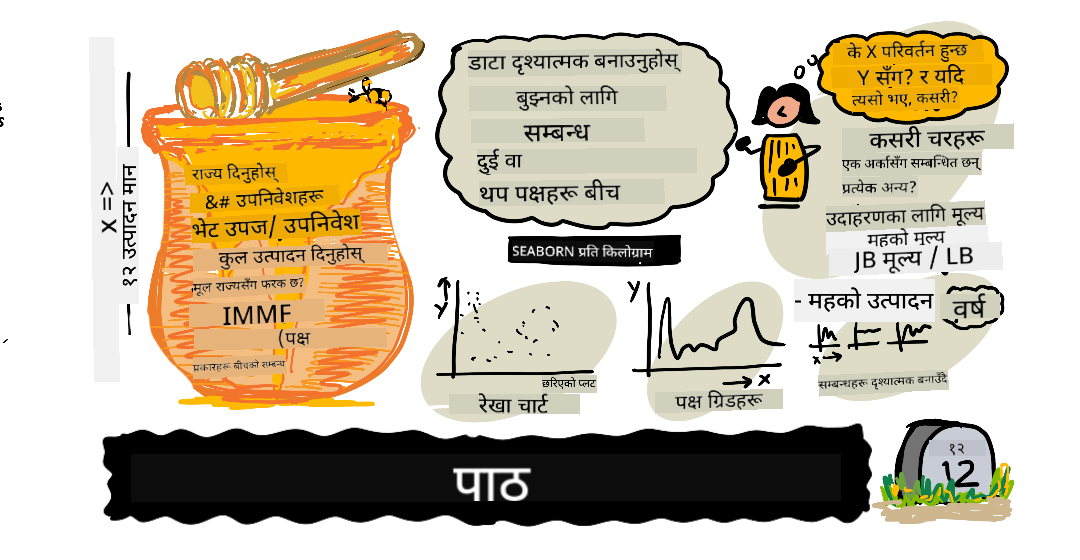 X =>
१२ उत्पादन मान
राज्य दिनुहोस्
&# उपनिवेशहरू
भेट उपज/ उपनिवेश
कुल उत्पादन दिनुहोस्
मूल राज्यसँग फरक छ?
IMMF
(पक्ष
प्रकारहरू बीचको सम्बन्ध
डाटा दृश्यात्मक बनाउनुहोस्
बुझ्नको लागि
सम्बन्ध
दुई वा
थप पक्षहरू बीच
SEABORN प्रति किलोग्राम
Y
छरिएको प्लट
रेखा चार्ट
Y
X
पक्ष ग्रिडहरू
के X परिवर्तन हुन्छ
Y सँग? र यदि
त्यसो भए, कसरी?
कसरी चरहरू
एक अर्कासँग सम्बन्धित छन्
प्रत्येक अन्य?
उदाहरणका लागि मूल्य
महको मूल्य
JB मूल्य / LB
- महको उत्पादन
वर्ष
X
सम्बन्धहरू दृश्यात्मक बनाउँदै
पाठ
१२
12